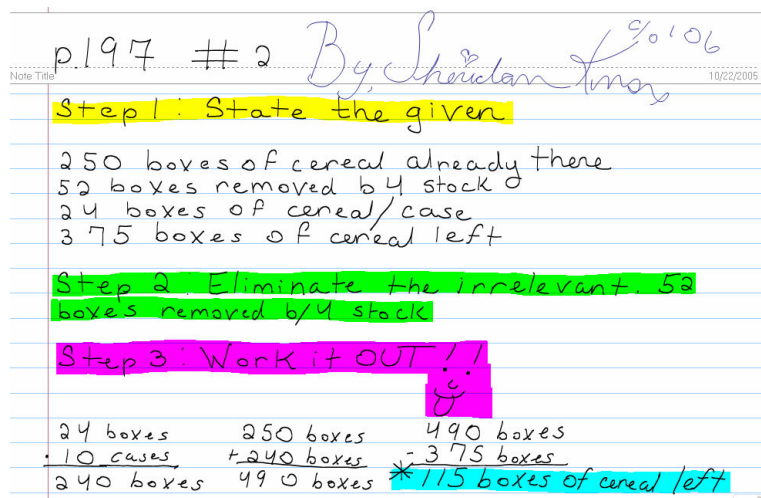 p.197 #2 By, Sheridan Knox c/o '06
Note Title 10/22/2005
Step 1: State the given
250 boxes of cereal already there
52 boxes removed b4 stock
24 boxes of cereal/case
375 boxes of cereal left
Step 2: Eliminate the irrelevant. 52
boxes removed b/4 stock
Step 3: Work it OUT!!
24 boxes 250 boxes 490 boxes
· 10 cases + 240 boxes - 375 boxes
240 boxes 490 boxes * 115 boxes of cereal left